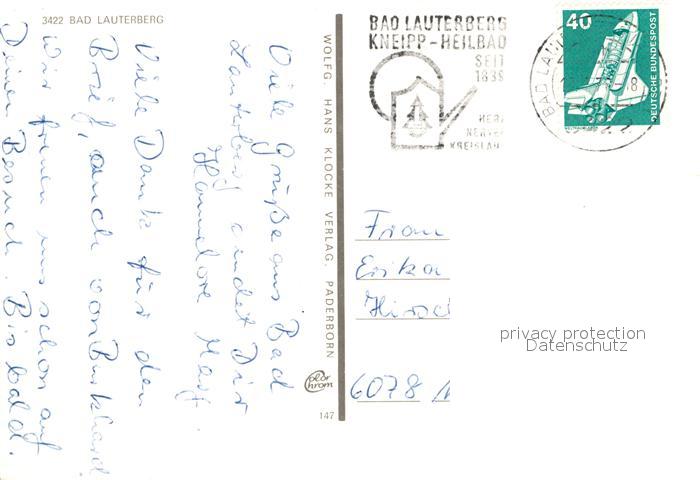 3422 BAD LAUTERBERG
Viele Grüße aus Bad
Lauterberg sendet Dir
Hannelore
Viele Dank für den
Brief, auch von Burkhard
Wir freuen uns schon auf
Deinen Besuch. Bis bald.
WOLFG. HANS KLOCKE VERLAG, PADERBORN
Color
chrom
147
BAD LAUTERBERG
KNEIPP-HEILBAD
SEIT
1839
HERZ
NERVEN
KREISLAU
BAD LAU
40
DEUTSCHE BUNDESPOST
Frau
Erika
6078
privacy protection
Datenschutz